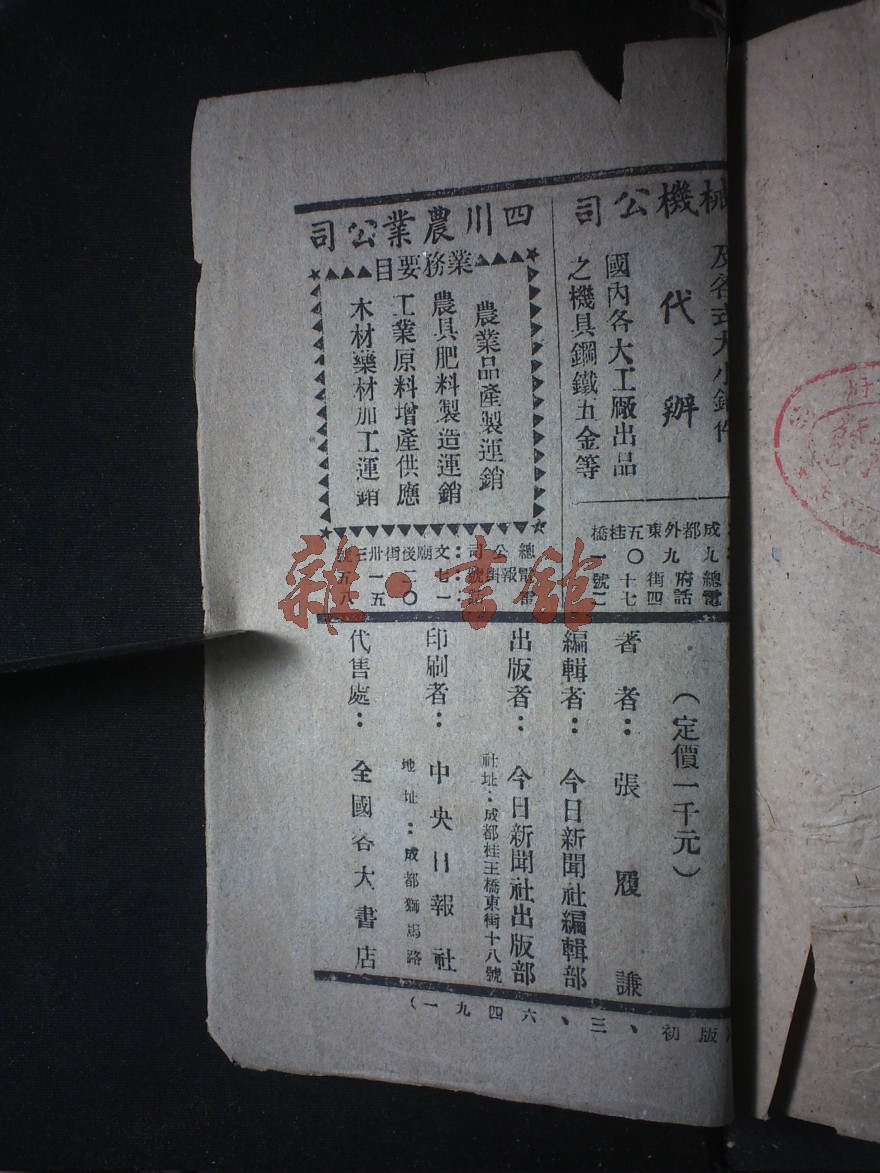 機公司
代辦
國內各大工廠出品
之機具鋼鐵五金等
四川農業公司
業務要目
農業品產製運銷
農具肥料製造運銷
工業原料增產供應
木材藥材加工運銷
成都外東五桂橋
總公司：文廟後街卅三號
（定價一千元）
著者：張履謙
編輯者：今日新聞社編輯部
出版者：今日新聞社出版部
社址：成都桂王橋東街十八號
印刷者：中央日報社
地址：成都獅馬路
代售處：全國各大書店
（一九四六、三、初版）
雜·書館